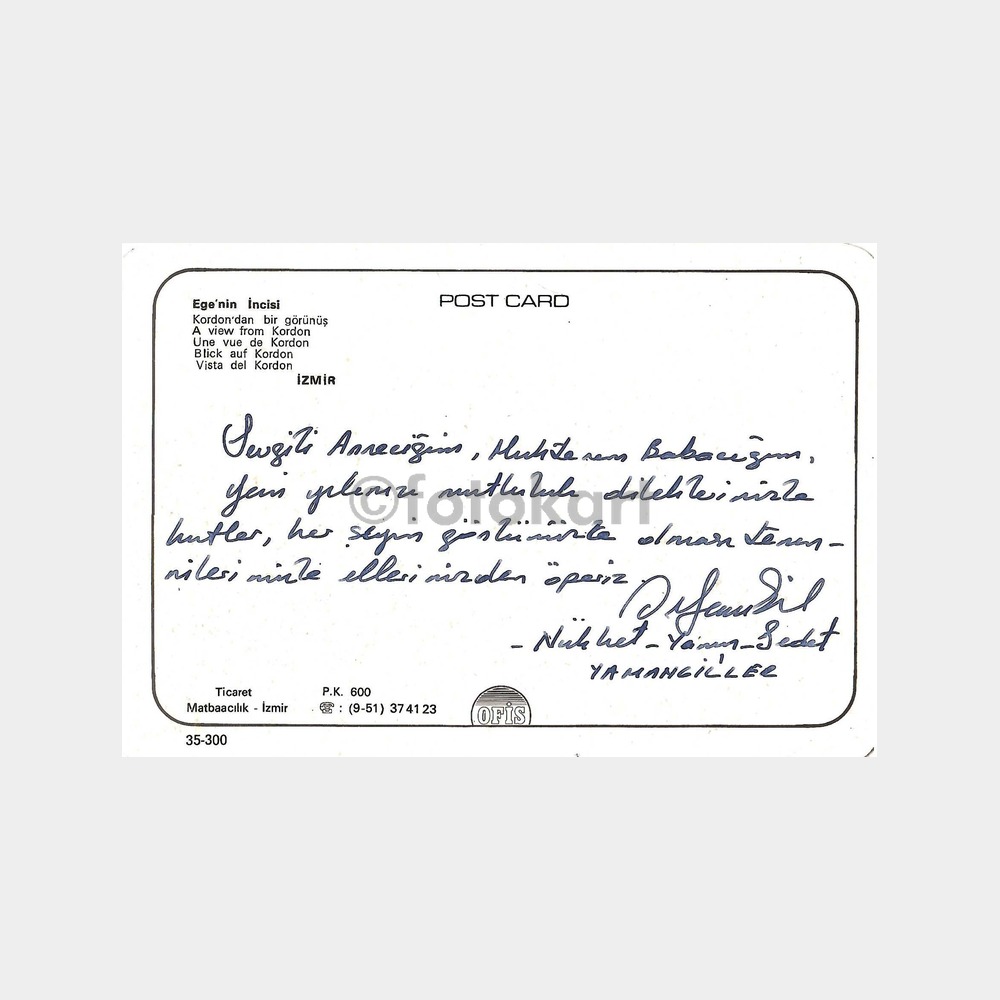 POST CARD
Ege'nin İncisi
Kordon'dan bir görünüş
A view from Kordon
Une vue de Kordon
Blick auf Kordon
Vista del Kordon
İZMİR
Sevgili Anneciğim, Muhterem Babacığım,
Yeni yılınızı mutluluk dileklerimizle
kutlar, her şeyin gönlünüzce olması temen-
nilerimizle ellerinizden öperiz.
- Nükhet - Yaman - Sedat
YAMANGİL'LER
Ticaret
Matbaacılık - İzmir
P.K. 600
☎ : (9-51) 37 41 23
OFİS
35-300
©fotokart